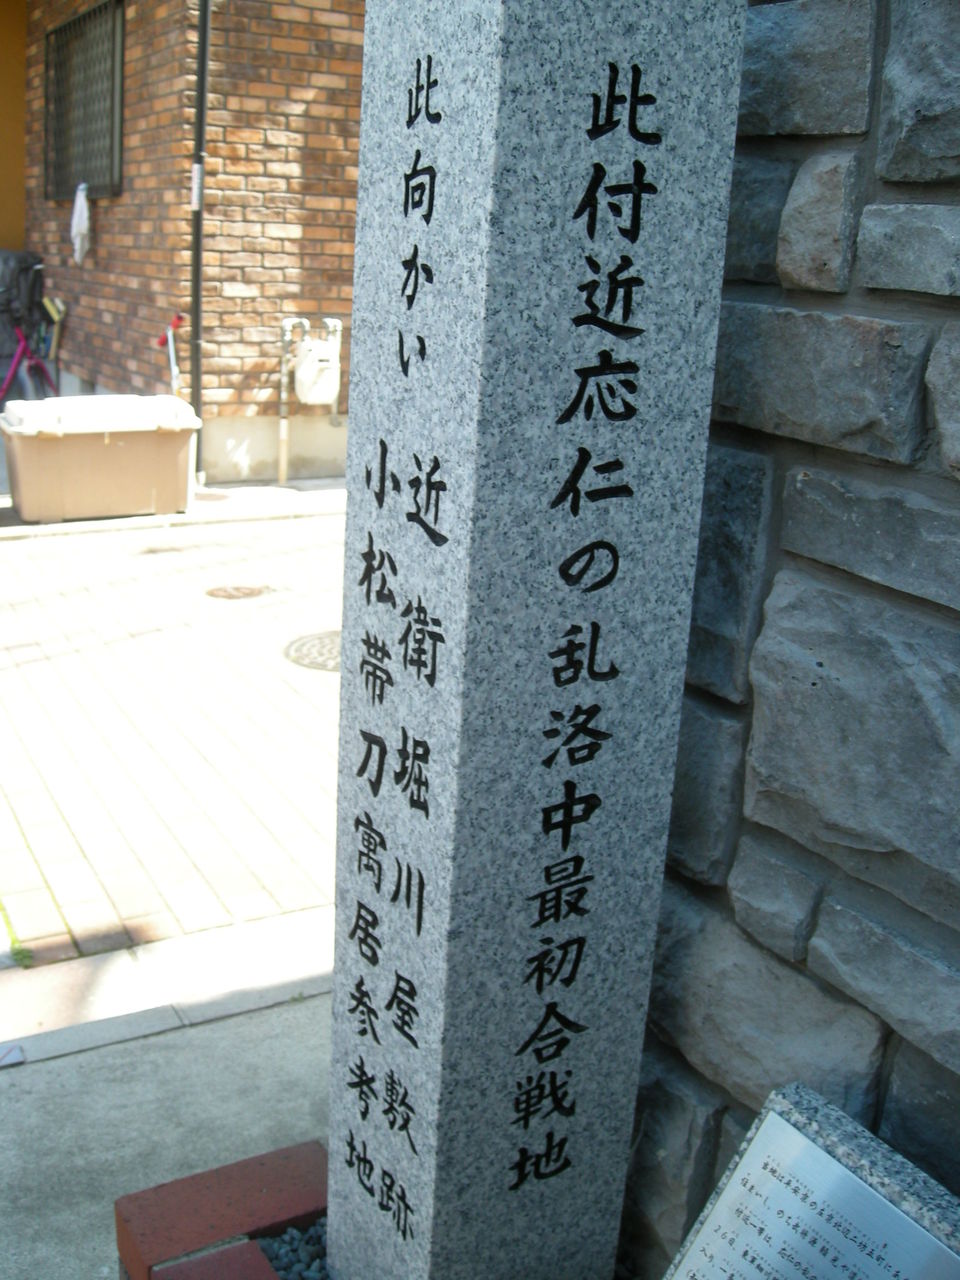 此付近応仁の乱洛中最初合戦地
此向かい
近衛堀川屋敷跡
小松帯刀寓居参考地